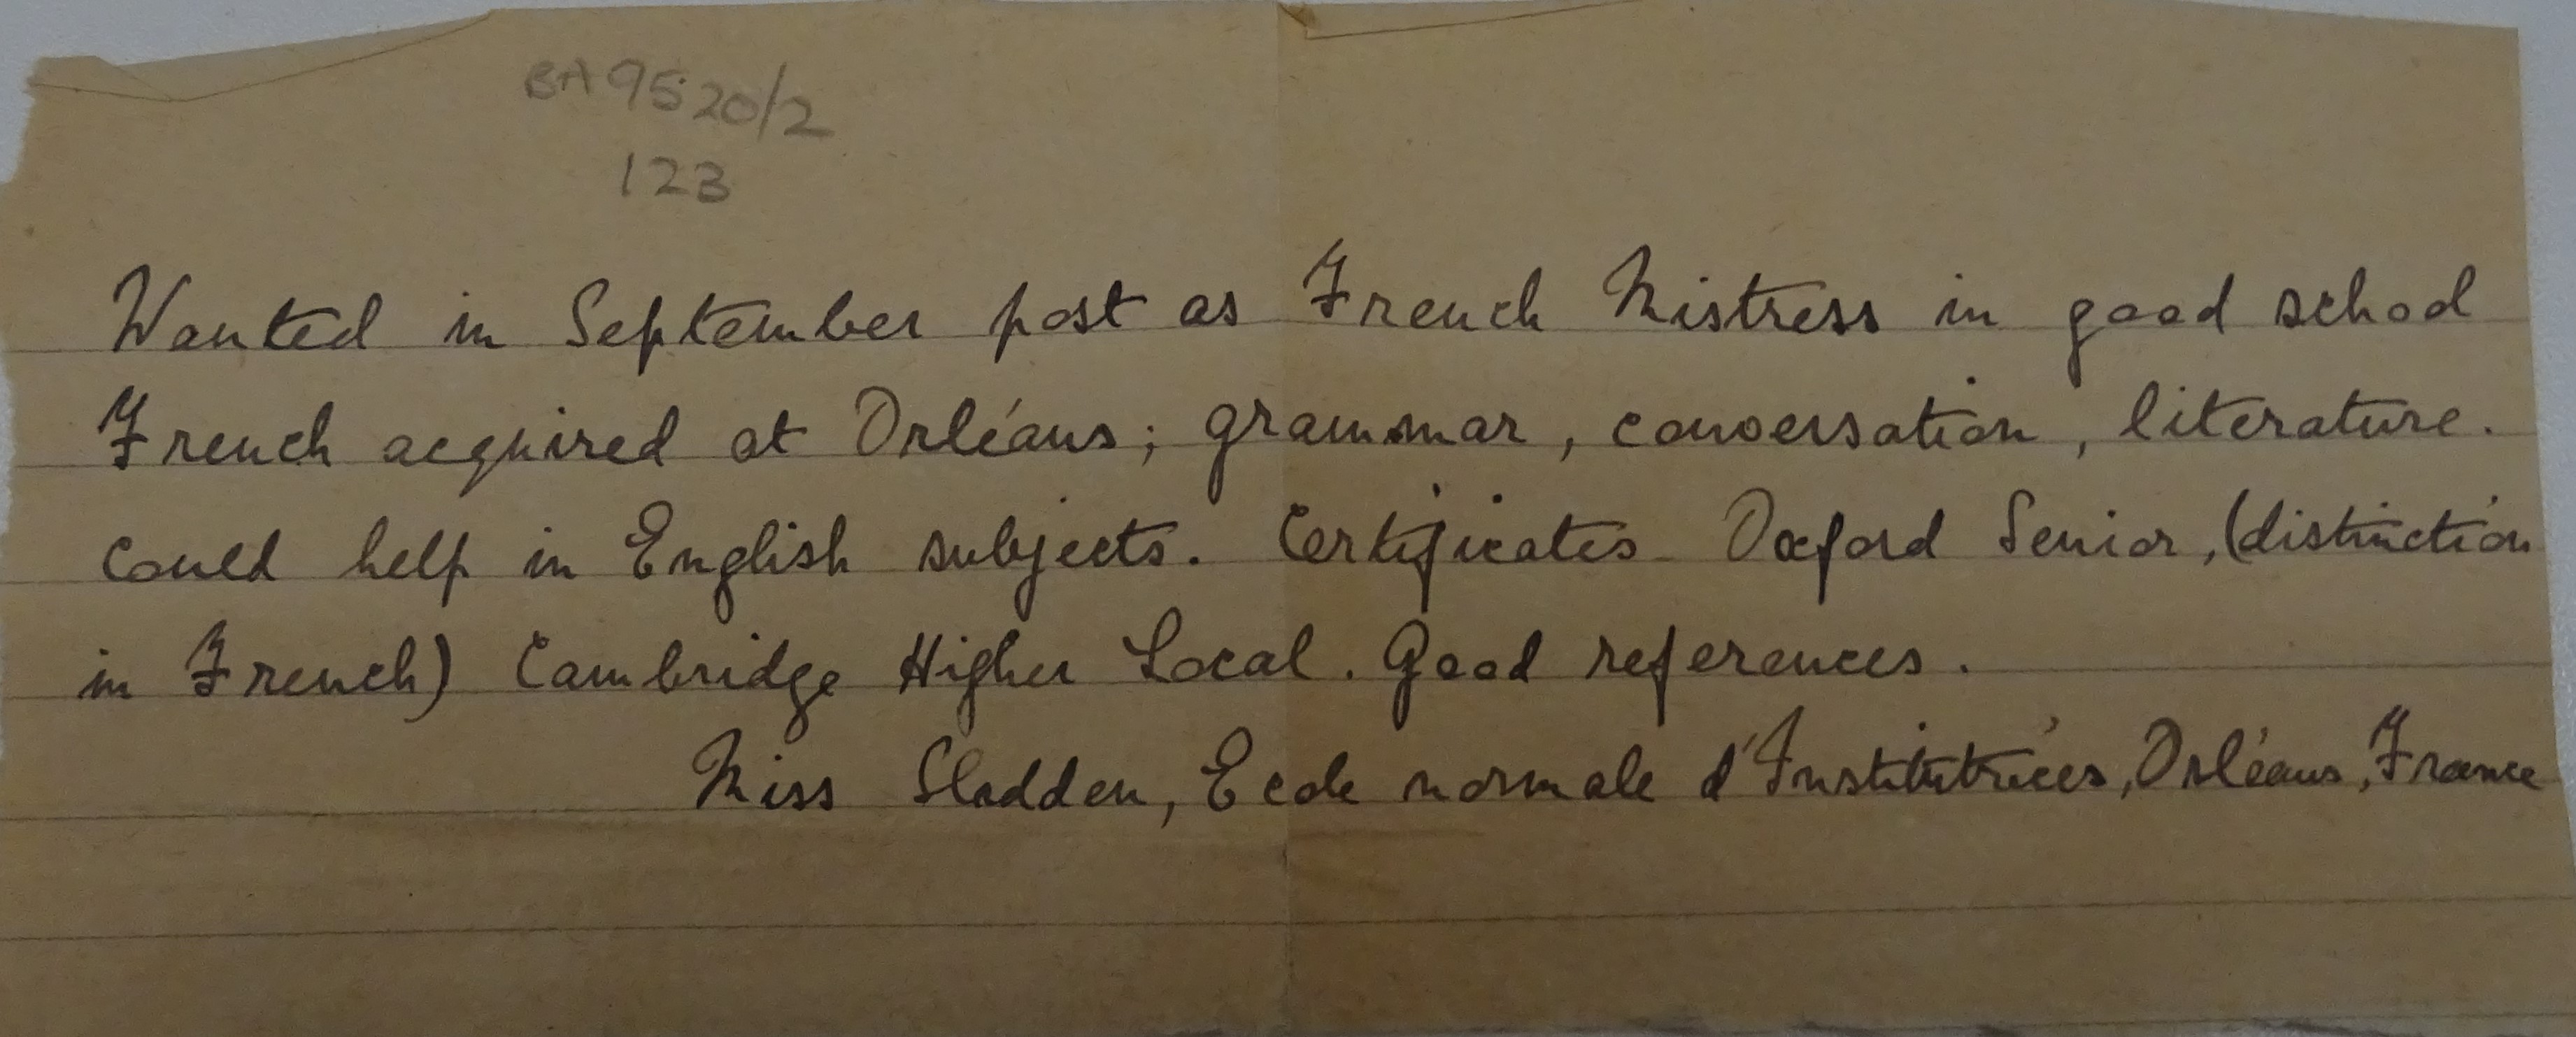 BA 9520/2
123
Wanted in September post as French Mistress in good school
French acquired at Orléans; grammar, conversation, literature.
Could help in English subjects. Certificates Oxford Senior, (distinction
in French) Cambridge Higher Local. Good references.
Miss Sladden, Ecole normale d'Institutrices, Orléans, France